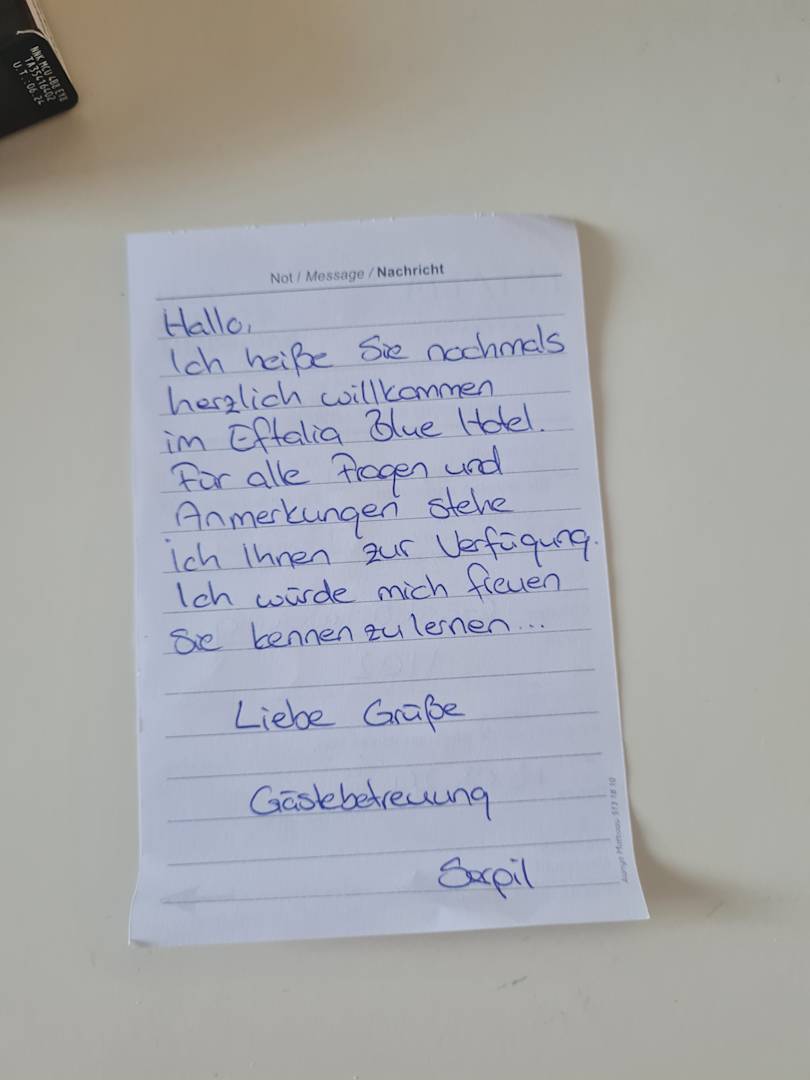 NNK MCU 4BB EYB
TA35416402
U.T.:06.24
Not / Message / Nachricht
Hallo,
Ich heiße Sie nochmals
herzlich willkommen
im Eftalia Blue Hotel.
Für alle Fragen und
Anmerkungen stehe
ich Ihnen zur Verfügung.
Ich würde mich freuen
Sie kennen zu lernen...
Liebe Grüße
Gästebetreuung
Serpil
513 18 10